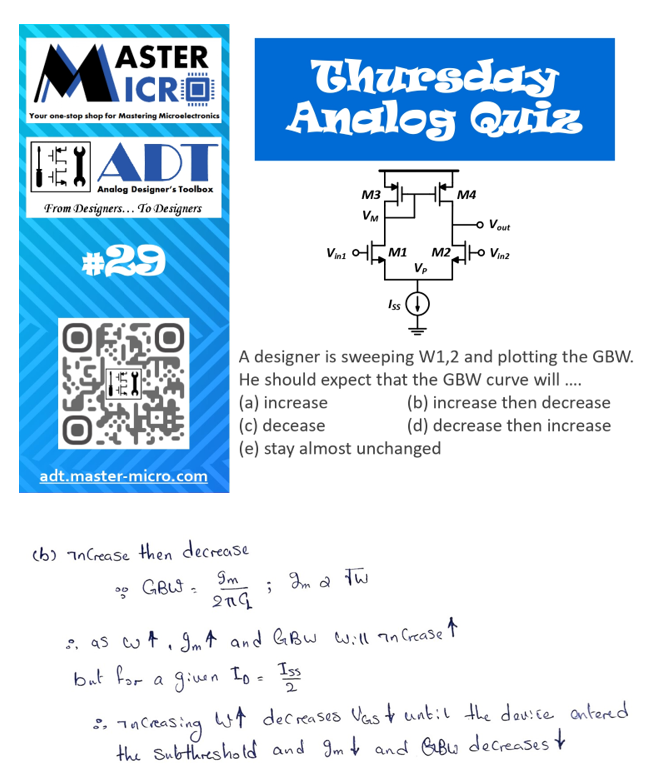 MASTER
MICRO
Your one-stop shop for Mastering Microelectronics
ADT
Analog Designer's Toolbox
From Designers... To Designers
#29
adt.master-micro.com
Thursday
Analog Quiz
M3
M4
VM
Vout
Vin1
M1
M2
Vin2
VP
ISS
A designer is sweeping W1,2 and plotting the GBW.
He should expect that the GBW curve will ....
(a) increase (b) increase then decrease
(c) decease (d) decrease then increase
(e) stay almost unchanged
(b) increase then decrease
∵ GBW = gm / 2πCL ; gm α √W
∴ as W↑, gm↑ and GBW will increase↑
but for a given ID = ISS / 2
∴ increasing W↑ decreases VGS↓ until the device entered
the subthreshold and gm↓ and GBW decreases↓